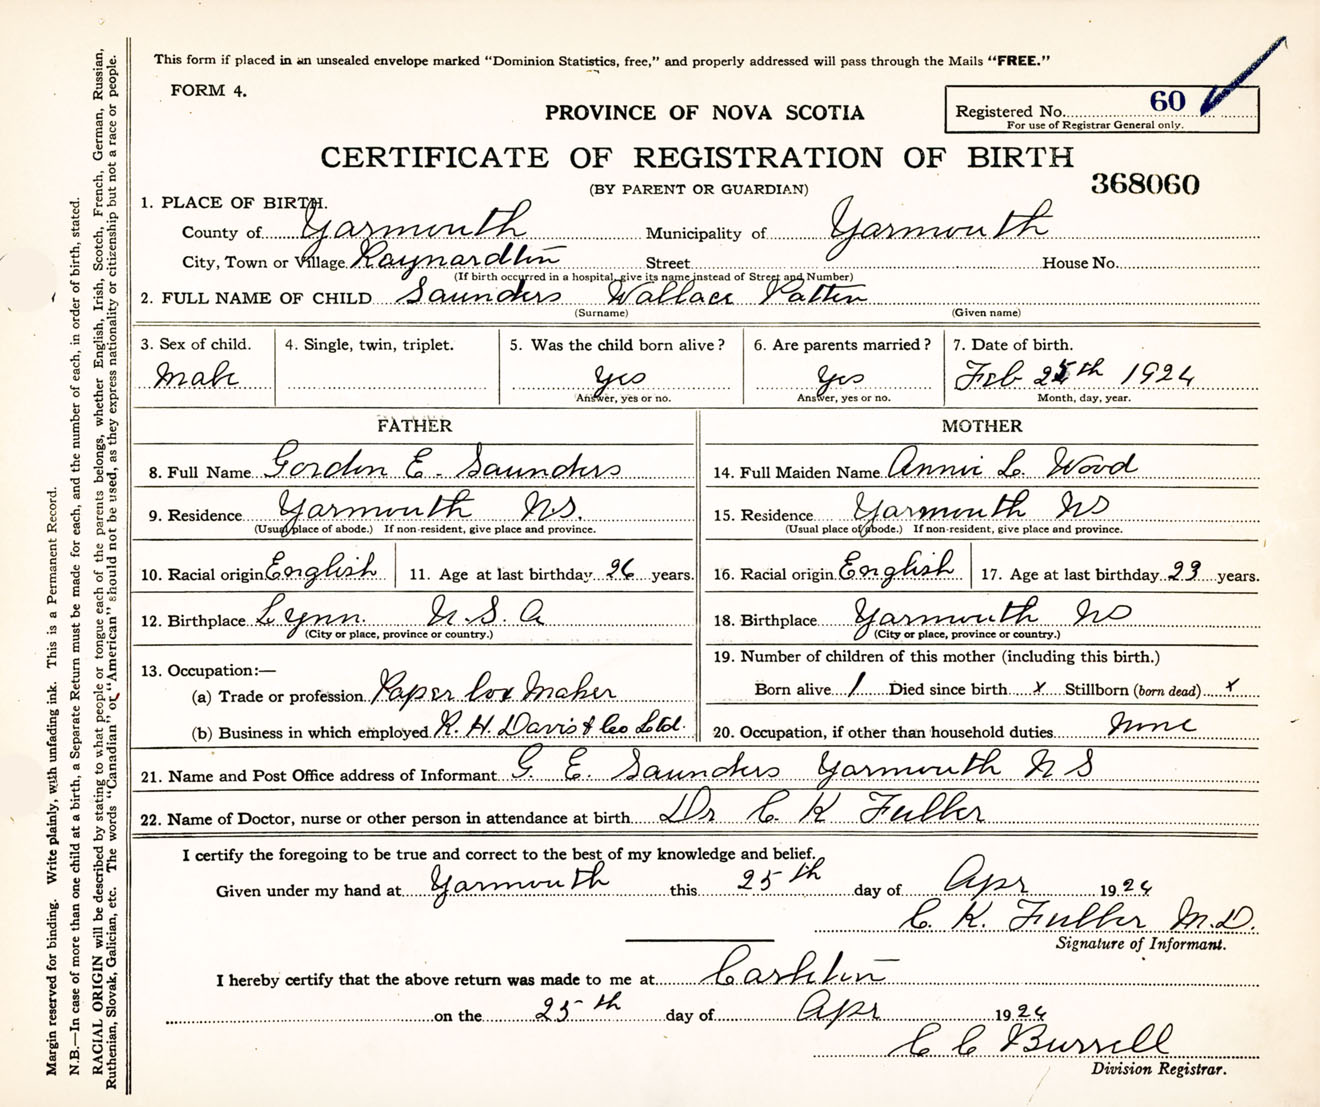 This form if placed in an unsealed envelope marked "Dominion Statistics, free," and properly addressed will pass through the Mails "FREE."
FORM 4.
PROVINCE OF NOVA SCOTIA
Registered No. 60
For use of Registrar General only.
CERTIFICATE OF REGISTRATION OF BIRTH
368060
(BY PARENT OR GUARDIAN)
1. PLACE OF BIRTH.
County of Yarmouth Municipality of Yarmouth
City, Town or Village Raynardton Street House No.
(If birth occurred in a hospital, give its name instead of Street and Number)
2. FULL NAME OF CHILD Saunders Wallace Patten
(Surname) (Given name)
3. Sex of child. 4. Single, twin, triplet. 5. Was the child born alive? 6. Are parents married? 7. Date of birth.
Male Yes Yes Feb 25th 1924
Answer, yes or no. Answer, yes or no. Month, day, year.
FATHER MOTHER
8. Full Name Gordon E. Saunders 14. Full Maiden Name Annie L. Wood
9. Residence Yarmouth N.S. 15. Residence Yarmouth NS
(Usual place of abode.) If non-resident, give place and province. (Usual place of abode.) If non-resident, give place and province.
10. Racial origin English 11. Age at last birthday 26 years. 16. Racial origin English 17. Age at last birthday 23 years.
12. Birthplace Lynn. U.S.A 18. Birthplace Yarmouth NS
(City or place, province or country.) (City or place, province or country.)
13. Occupation:— 19. Number of children of this mother (including this birth.)
(a) Trade or profession Paper box Maker Born alive 1 Died since birth x Stillborn (born dead) x
(b) Business in which employed K. H. Davis & Co Ltd. 20. Occupation, if other than household duties None
21. Name and Post Office address of Informant G. E. Saunders Yarmouth N S
22. Name of Doctor, nurse or other person in attendance at birth Dr C. K Fuller
I certify the foregoing to be true and correct to the best of my knowledge and belief.
Given under my hand at Yarmouth this 25th day of Apr 1924
C. K. Fuller M.D.
Signature of Informant.
I hereby certify that the above return was made to me at Carleton
on the 25th day of Apr 1924
C C Burrell
Division Registrar.
Margin reserved for binding. Write plainly, with unfading ink. This is a Permanent Record.
N.B.—In case of more than one child at a birth, a Separate Return must be made for each, and the number of each, in order of birth, stated.
RACIAL ORIGIN will be described by stating to what people or tongue each of the parents belongs, whether English, Irish, Scotch, French, German, Russian,
Ruthenian, Slovak, Galician, etc. The words "Canadian" or "American" should not be used, as they express nationality or citizenship but not a race or people.